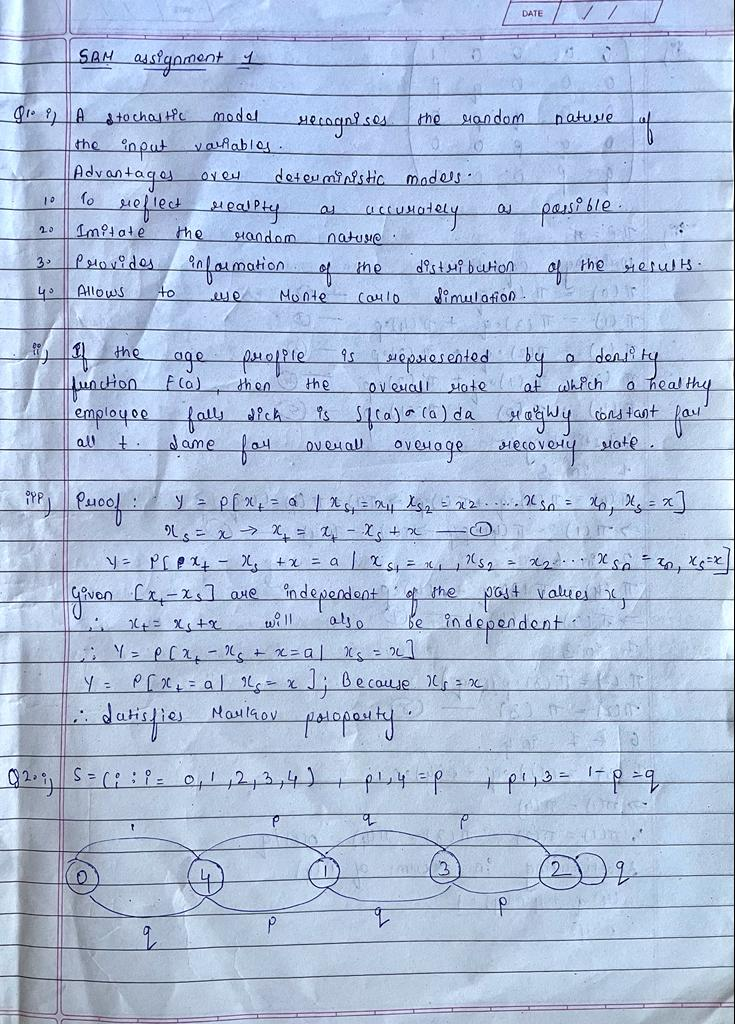 DATE / /
SRM assignment 1
Q1. i) A stochastic model recognises the random nature of
the input variables.
Advantages over deterministic models.
1. To reflect reality as accurately as possible.
2. Imitate the random nature.
3. Provides information of the distribution of the results.
4. Allows to use Monte Carlo Simulation.
ii) If the age profile is represented by a density
function F(a), then the overall rate at which a healthy
employee falls sick is ∫f(a)σ(a)da roughly constant for
all t. Same for overall average recovery rate.
iii) Proof: Y = P[x_t = a | x_s1 = x_1, x_s2 = x2 ..... x_sn = x_n, x_s = x]
x_s = x → x_t = x_t - x_s + x — ①
Y = P[x_t - x_s + x = a | x_s1 = x_1, x_s2 = x_2 ... x_sn = x_n, x_s = x]
Given [x_t - x_s] are independent of the past values x,
∴ x_t = x_s + x will also be independent.
∴ Y = P[x_t - x_s + x = a | x_s = x]
Y = P[x_t = a | x_s = x]; Because x_s = x
∴ Satisfies Markov property.
Q2. i) S = (i : i = 0, 1, 2, 3, 4) , p1,4 = p , p1,3 = 1 - p = q
1 p q p
0 4 1 3 2 q
q p q p